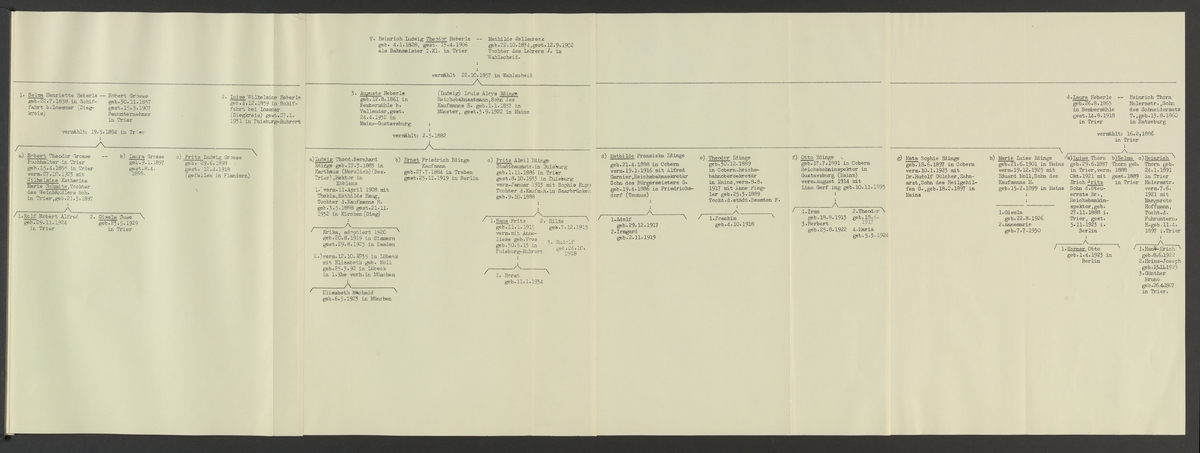 V. Heinrich Ludwig Theodor Heberle -- Mathilde Wellenbeck
geb. 4.1.1828, gest. 15.4.1906 geb.22.10.1834,gest.12.9.1902
als Bahnmeister I.Kl. in Trier Tochter des Lehrers J. in
Wahlscheid.
vermählt 22.10.1857 in Wahlscheid
1. Helma Henriette Heberle -- Robert Grosse
geb.21.7.1858 in Schif- geb.30.11.1857
fahrt b. gest.15.5.1907
Bauunternehmer
in Trier
vermählt: 19.5.1884 in Trier
2. Luise Wilhelmine Heberle
geb.4.12.1859 in Schif-
fahrt bei
(Siegkreis) gest.27.1.
1931 in Duisburg-Ruhrort
3. Auguste Heberle
geb.12.8.1861 in
Bembermühle b.
Vallendar,gest.
24.4.1932 in
Mainz-Gustavsburg
(Ludwig) Louis Aloys Hänge
Reichsbahnamtmann,Sohn des
Kaufmanns H. geb.1.1.1857 in
Münster, gest.3.9.1922 in Mainz
vermählt: 2.5.1882
4.Laura Heberle -- Heinrich Thorn
geb.26.8.1863 Malermstr.,Sohn
in Bembermühle des Schneidermstr
gest.14.8.1918 T.,geb.13.8.1860
in Trier in Ratzeburg
vermählt: 16.2.1886
in Trier
a) Robert Theodor Grosse
Buchhalter in Trier
geb.15.4.1895 in Trier
verm.27.10.1923 mit
Wilhelmine Katharina
Marie Schmitz,Tochter
des Weinhändlers Sch.
in Trier,geb.21.5.1897
b) Laura Grosse
geb.9.1.1897
gest.8.4.
1898
c) Fritz Ludwig Grosse
geb.29.6.1898
gest. 12.4.1918
(gefallen in Flandern)
1.Rolf Robert Alfred
geb.29.11.1924
in Trier
2. Gisela Duwe
geb.23.5.1929
in Trier
a)Ludwig Theod.Bernhard
Hänge geb.17.3.1883 in
Karthaus (Merzlich)(Bez.
Trier),Rektor in
Koblenz
1. verm.11.April 1908 mit
Thekla,Mathilde Haug,
Tochter d.Kaufmanns H.
geb.3.5.1888 gest.21.11.
1932 in Kirchen (Sieg)
Erika, adoptiert 1920
geb.20.8.1919 in Simmern
gest.29.8.1923 in Leuden
2.) verm.12.10.1933 in Lübeck
mit Elisabeth geb. Moll
geb.25.3.92 in Lübeck
in 1.Ehe verh.in München
Elisabeth Reinheid
geb.6.3.1923 in München
b) Ernst Friedrich Hänge
Kaufmann
geb.27.7.1884 in Treben
gest.25.11.1919 in Berlin
c) Fritz Abeil Hänge
Stadtbaumstr.in Duisburg
geb.1.11.1886 in Trier
gest.8.10.1933 in Duisburg
verm.Januar 1913 mit Sophia Kupp
Tochter d.Kaufm.K.in Saarbrücken
geb.9.10.1888
1. Hans Fritz
geb.11.1.1913
verm.mit Anne-
liese geb.Vros
geb.30.5.13 in
Duisburg-Ruhrort
2. Hilde
geb.7.12.1915
3. Rudolf
geb.24.10.
1918
1. Horst
geb.11.1.1934
d) Mathilde Franziska Hänge
geb.21.4.1888 in Cobern
verm.19.1.1916 mit Alfred
Garnier,Reichsbahnsekretär
Sohn des Bürgermeisters G.
geb.19.4.1886 in Friedrichs-
dorf (Taunus)
1.Adolf
geb.29.12.1917
2.Irmgard
geb.2.11.1919
e) Theodor Hänge
geb.30.12.1889
in Cobern-Reichs-
bahnobersekretär
in Mainz,verm.8.8.
1917 mit Anna Fieg-
ler geb.25.3.1899
Tocht.d.städt.Beamten F.
1.Joachim
geb.4.10.1918
f) Otto Hänge
geb.17.7.1891 in Cobern
Reichsbahninspektor in
Gustavsburg (Mainz)
verm.August 1914 mit
Lina Gerf ing geb.10.11.1893
1.Irma
geb.19.8.1913
3.Herbert
geb.25.8.1922
2.Theodor
geb.19.4.
1917
4.Maria
geb.5.3.1924
g) Meta Sophie Hänge
geb.18.6.1897 in Cobern
verm.10.1.1923 mit
Dr.Rudolf Gölcher,Zahn-
arzt,Sohn des Heilgehil-
fen G.,geb.18.2.1897 in
Mainz
h) Marie Luise Hänge
geb.21.6.1901 in Mainz
verm.19.12.1925 mit
Eduard Keil,Sohn des
Kaufmanns K.
geb.15.2.1899 in Mainz
1.Gisela
geb.22.8.1926
2.Annemarie
geb.7.7.1930
a)Luise Thorn
geb.29.6.1887
in Trier, verm.
Okt.1921 mit
Erich Fritz
Sohn d.Steu-
ererats Br.,
Reichsbankin-
spektor,geb.
27.11.1888 i.
Trier, gest.
5.11.1923 i.
Berlin
b)Selma
1888
gest.1889
in Trier
c)Heinrich
Thorn geb.
24.1.1891
in Trier
Malermstr.
verm.7.6.
1921 mit
Margarete
Hoffmann,
Tocht.d.
Fuhruntern.
H.geb.11.4.
1897 i.Trier
1.Werner Otto
geb.1.4.1923 in
Berlin
1.Hans-Erich
geb.8.6.1922
2.Heinz-Joseph
geb.15.11.1923
3.Günther
Bruno
geb.26.4.1927
in Trier.